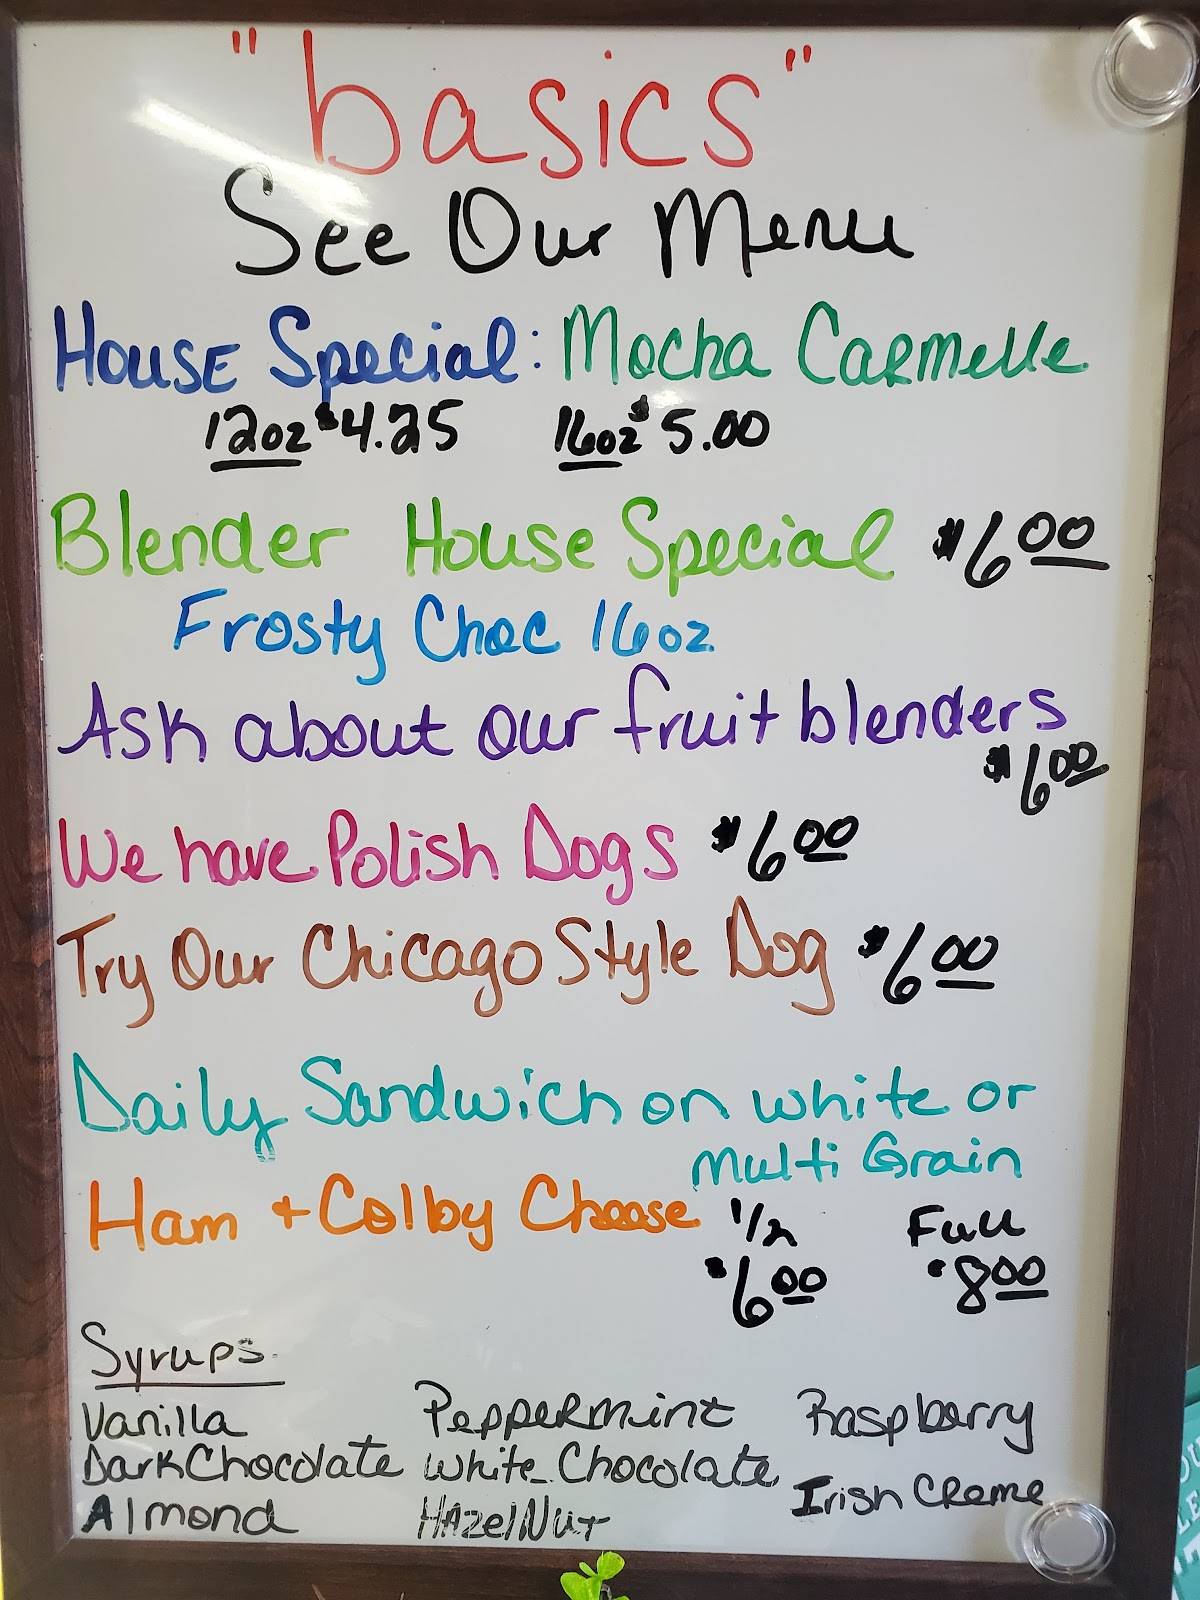 "basics"
See Our Menu
House Special: Mocha Carmelle
12oz $4.25 16oz $5.00
Blender House Special $6.00
Frosty Choc 16oz
Ask about our fruit blenders
$6.00
We have Polish Dogs $6.00
Try Our Chicago Style Dog $6.00
Daily Sandwich on white or
Multi Grain
Ham + Colby Cheese 1/2 Full
$6.00 $8.00
Syrups
Vanilla Peppermint Raspberry
Dark Chocolate White Chocolate Irish Creme
Almond HazelNut